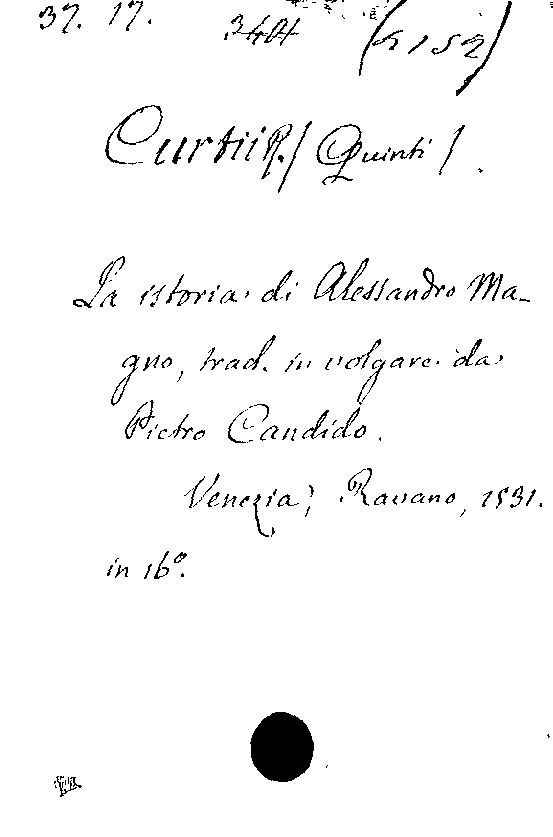 37. 17. 3404 (5152)
Curtii R./ Quinti /.
La istoria di Alessandro Ma-
gno, trad. in volgare da
Pietro Candido.
Venezia, Ravano, 1531.
in 16°.